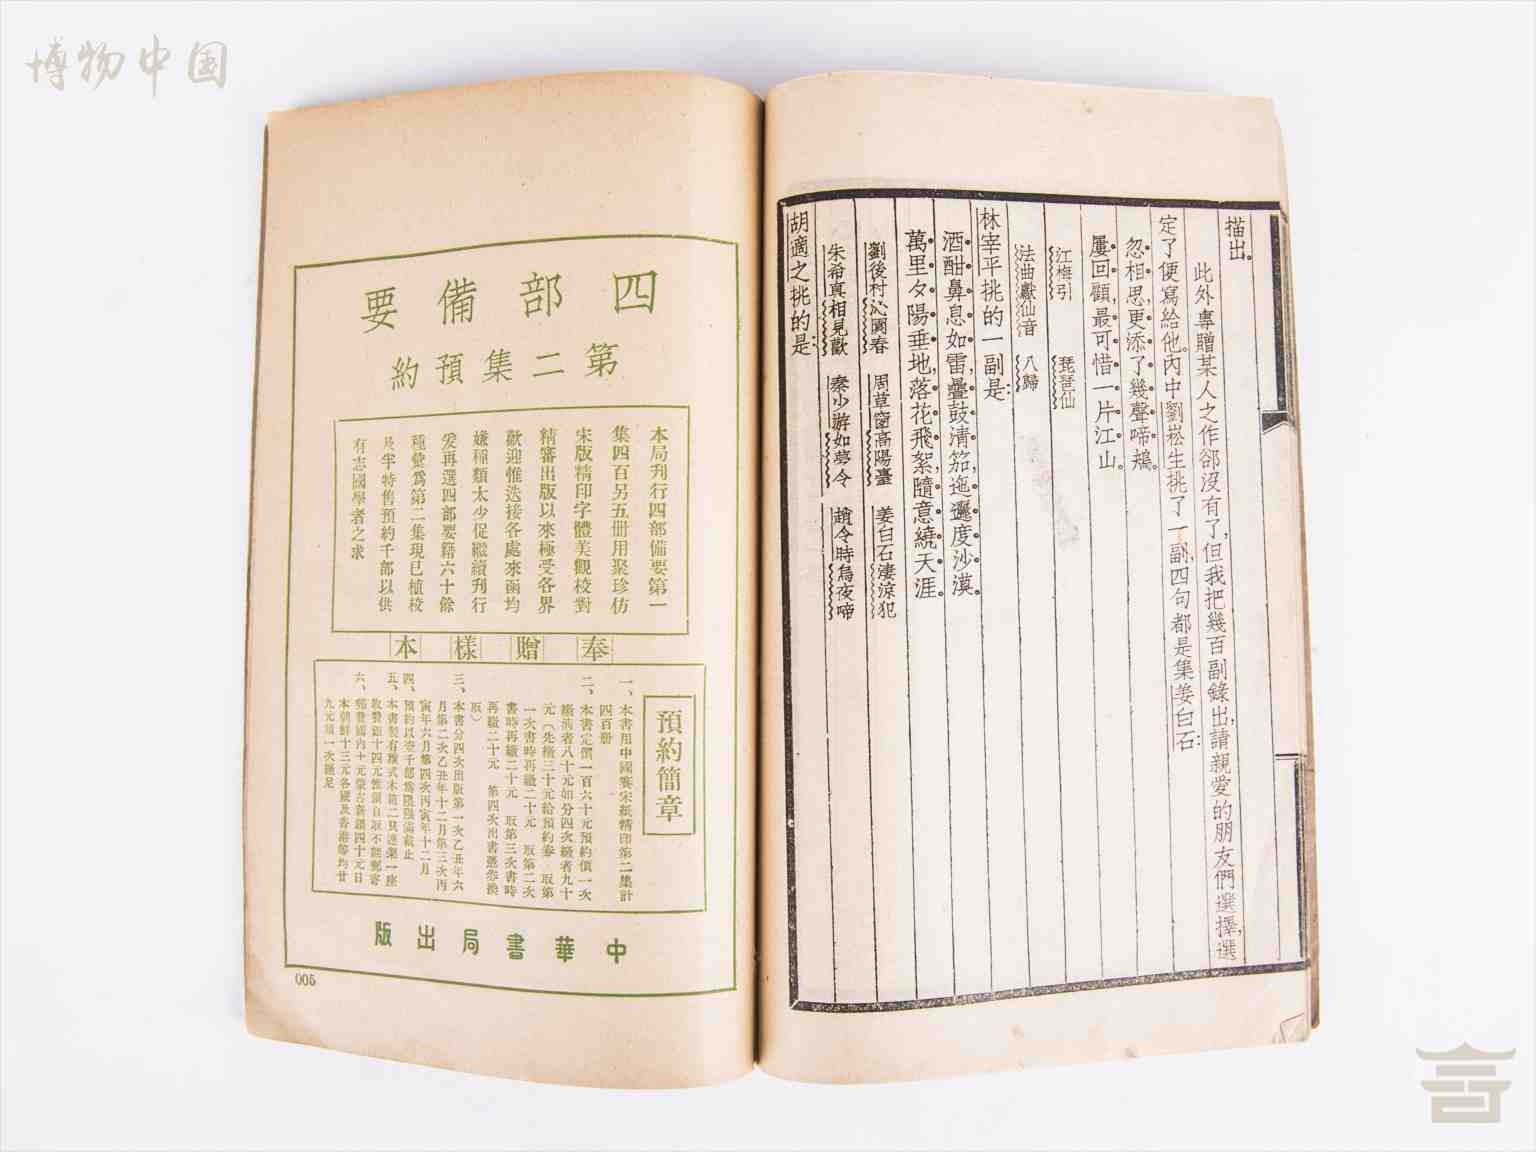 博物中国
描出。
此外專贈某人之作卻沒有了，但我把幾百副錄出，請親愛的朋友們選擇，選
定了便寫給他。內中劉崧生挑了一副，四句都是集姜白石：
忽相思，更添了幾聲啼鴂。
屢回顧，最可惜一片江山。
江梅引 琵琶仙
法曲獻仙音 八歸
林宰平挑的一副是：
酒酣鼻息如雷，疊鼓清笳，迤邐度沙漠。
萬里夕陽垂地，落花飛絮，隨意繞天涯。
劉後村沁園春 周草窗高陽臺 姜白石淒涼犯
朱希真相見歡 秦少游如夢令 趙令畤烏夜啼
胡適之挑的是：
四部備要
第二集預約
本局刋行四部備要第一
集四百另五冊用聚珍仿
宋版精印字體美觀校對
精審出版以來極受各界
歡迎惟迭接各處來函均
嫌種類太少促繼續刋行
爰再選四部要籍六十餘
種彙爲第二集現已植校
及半特售預約千部以供
有志國學者之求
奉贈樣本
預約簡章
一、本書用中國賽宋紙精印第二集計
四百册
二、本書定價一百六十元預約價一次
繳淸者八十元如分四次繳者九十
元（先繳三十元給預約券 取第
一次書時再繳二十元 取第二次
書時再繳二十元 取第三次書時
再繳二十元 第四次出書憑券換
取）
三、本書分四次出版第一次乙丑年六
月第二次乙丑年十二月第三次丙
寅年六月第四次丙寅年十二月
四、預約以壹千部爲限限滿截止
五、本書製有雅式木箱二只連架一座
收費銀十四元惟須自取不能郵寄
六、郵費國內十元蒙古新疆四十元日
本朝鮮十三元各國及香港等均廿
九元須一次繳足
中華書局出版
005